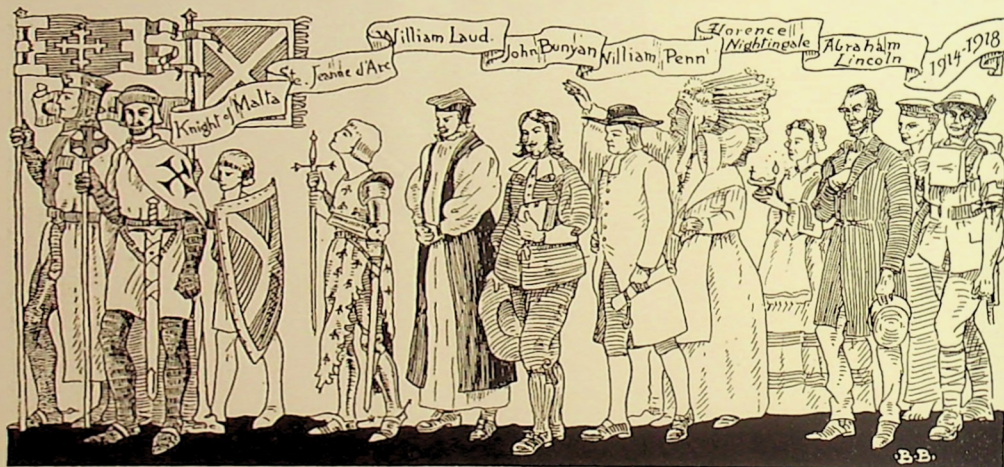 Knight of Malta
Ste. Jeanne d'Arc
William Laud.
John Bunyan
William Penn
Florence
Nightingale
Abraham
Lincoln
1914-1918
·B·B·